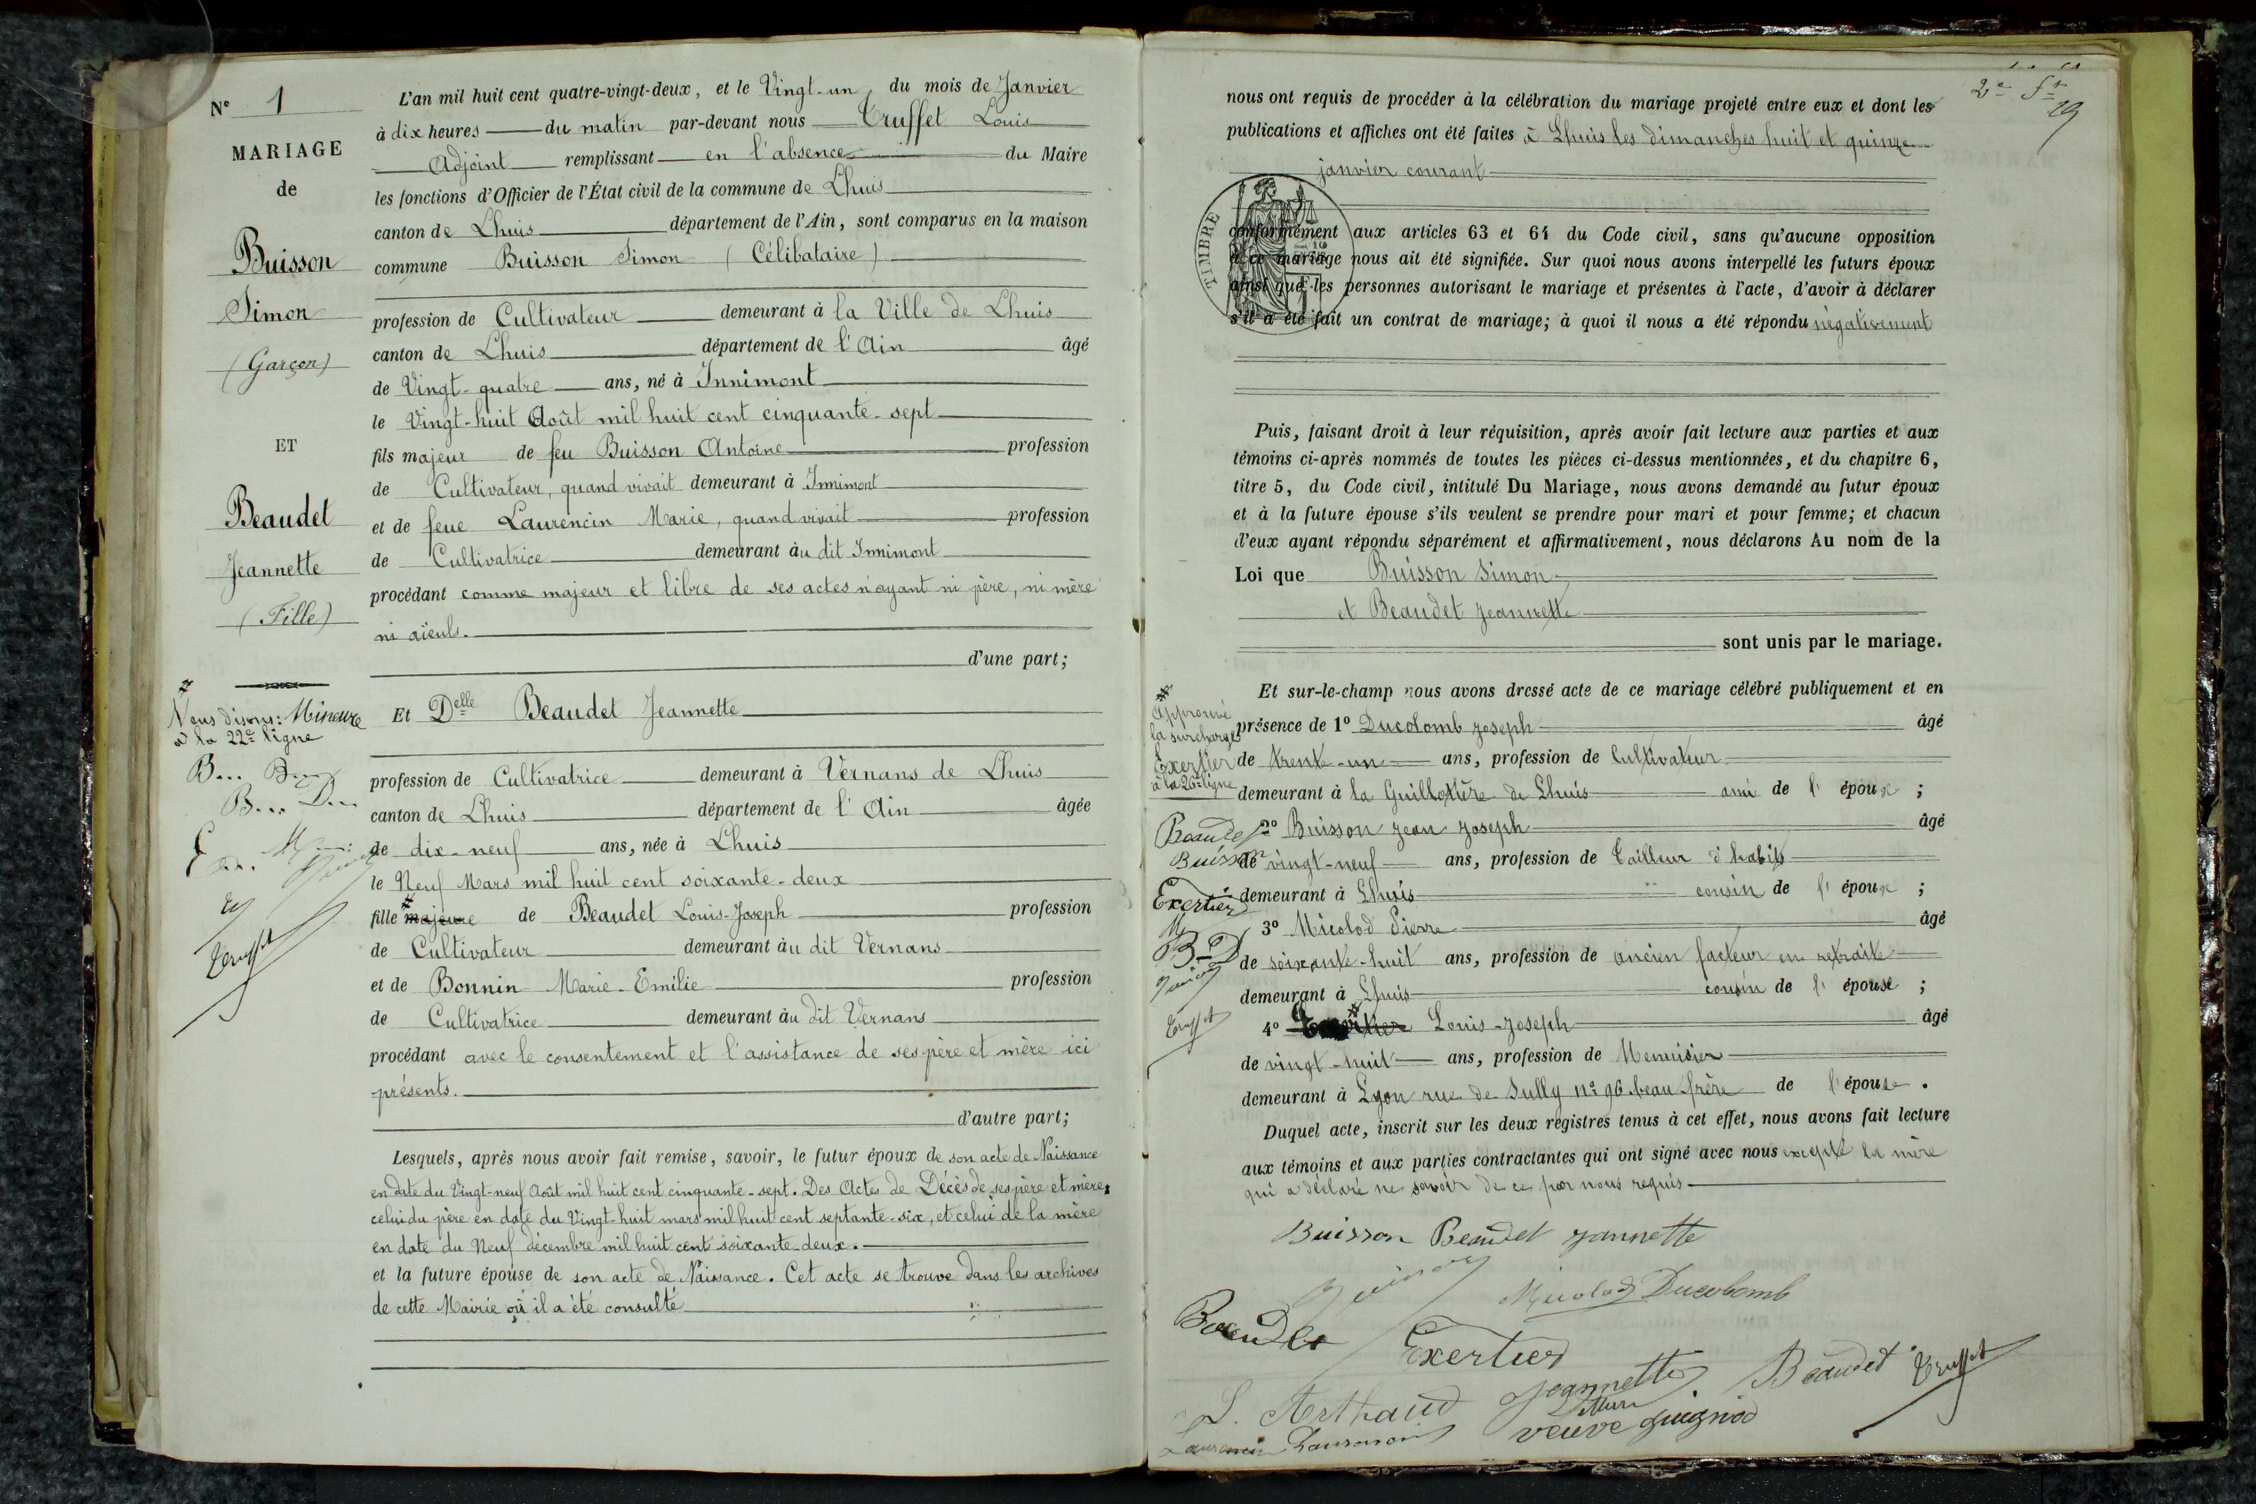 N° 1
MARIAGE
de
Buisson
Simon
(Garçon)
ET
Beaudet
Jeannette
(Fille)
Nous disons: Mineure
à la 22e ligne
B... B...
B... D...
Truffet
L'an mil huit cent quatre-vingt-deux, et le Vingt-un du mois de Janvier
à dix heures du matin par-devant nous Truffet Louis
Adjoint remplissant en l'absence du Maire
les fonctions d'Officier de l'État civil de la commune de Lhuis
canton de Lhuis département de l'Ain, sont comparus en la maison
commune Buisson Simon (Célibataire)
profession de Cultivateur demeurant à la Ville de Lhuis
canton de Lhuis département de l'Ain âgé
de Vingt-quatre ans, né à Innimont
le Vingt-huit Août mil huit cent cinquante-sept
fils majeur de feu Buisson Antoine profession
de Cultivateur, quand vivait demeurant à Innimont
et de feue Laurencin Marie, quand vivait profession
de Cultivatrice demeurant àu dit Innimont
procédant comme majeur et libre de ses actes n'ayant ni père, ni mère
ni aïeuls.
d'une part;
Et Delle Beaudet Jeannette
profession de Cultivatrice demeurant à Vernans de Lhuis
canton de Lhuis département de l'Ain âgée
de dix-neuf ans, née à Lhuis
le Neuf Mars mil huit cent soixante-deux
fille majeure de Beaudet Louis-Joseph profession
de Cultivateur demeurant àu dit Vernans
et de Bonnin Marie-Emilie profession
de Cultivatrice demeurant àu dit Vernans
procédant avec le consentement et l'assistance de ses père et mère ici
présents.
d'autre part;
Lesquels, après nous avoir fait remise, savoir, le futur époux de son acte de Naissance
en date du Vingt-neuf Août mil huit cent cinquante-sept. Des Actes de Décès de ses père et mère,
celui du père en date du Vingt-huit mars mil huit cent septante-six, et celui de la mère
en date du Neuf décembre mil huit cent soixante-deux.
et la future épouse de son acte de Naissance. Cet acte se trouve dans les archives
de cette Mairie où il a été consulté
nous ont requis de procéder à la célébration du mariage projeté entre eux et dont les
publications et affiches ont été faites à Lhuis les dimanches huit et quinze
janvier courant
TIMBRE
conformément aux articles 63 et 64 du Code civil, sans qu'aucune opposition
à ce mariage nous ait été signifiée. Sur quoi nous avons interpellé les futurs époux
ainsi que les personnes autorisant le mariage et présentes à l'acte, d'avoir à déclarer
s'il a été fait un contrat de mariage; à quoi il nous a été répondu négativement
Puis, faisant droit à leur réquisition, après avoir fait lecture aux parties et aux
témoins ci-après nommés de toutes les pièces ci-dessus mentionnées, et du chapitre 6,
titre 5, du Code civil, intitulé Du Mariage, nous avons demandé au futur époux
et à la future épouse s'ils veulent se prendre pour mari et pour femme; et chacun
d'eux ayant répondu séparément et affirmativement, nous déclarons Au nom de la
Loi que Buisson Simon
et Beaudet Jeannette
sont unis par le mariage.
Et sur-le-champ nous avons dressé acte de ce mariage célébré publiquement et en
présence de 1° Ducolomb Joseph âgé
de trente-un ans, profession de Cultivateur
demeurant à la Guillotière de Lhuis ami de l'époux ;
2° Buisson Jean Joseph âgé
de vingt-neuf ans, profession de Tailleur d'habits
demeurant à Lhuis cousin de l'époux ;
3° Micolod Pierre âgé
de soixante-huit ans, profession de ancien facteur en retraite
demeurant à Lhuis cousin de l'épouse ;
4° Louis-Joseph âgé
de vingt-huit ans, profession de Menuisier
demeurant à Lyon rue de Sully n° 96 beau frère de l'épouse.
Duquel acte, inscrit sur les deux registres tenus à cet effet, nous avons fait lecture
aux témoins et aux parties contractantes qui ont signé avec nous excepté la mère
qui a déclaré ne savoir de ce par nous requis
Approuvé
la surcharge
Exertier
à la 26e ligne
Beaudet
Buisson
Exertier
M
B D
Truffet
Buisson Beaudet Jannette
Micolod Ducolomb
Beaudet
Exertier
Jeannette Beaudet Truffet
L. Arthaud
veuve Guignod
Laurencin